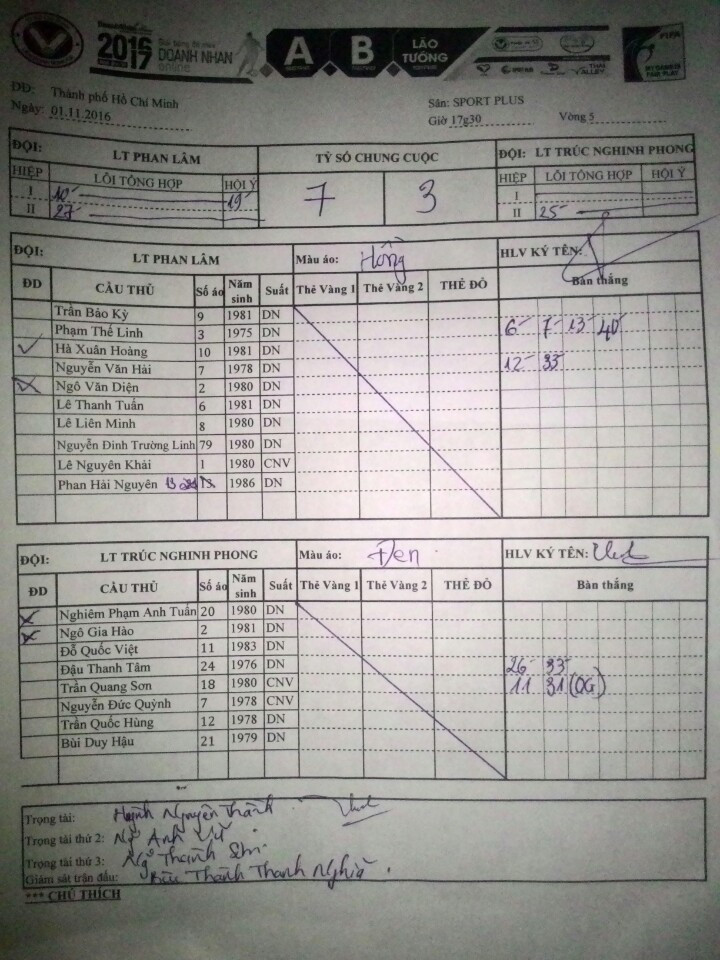 2016
2017
DOANH NHÂN
online
A B LÃO TƯỚNG
FIFA
MY GAME IS FAIR PLAY
THAI VALLEY
ĐĐ: Thành phố Hồ Chí Minh
Ngày: 01.11.2016
Sân: SPORT PLUS
Giờ 17g30 Vòng 5
ĐỘI: LT PHAN LÂM TỶ SỐ CHUNG CUỘC ĐỘI: LT TRÚC NGHINH PHONG
HIỆP LỖI TỔNG HỢP HỘI Ý 7 3 HIỆP LỖI TỔNG HỢP HỘI Ý
I 10' 19' I
II 27' II 25'
ĐỘI: LT PHAN LÂM Màu áo: Hồng HLV KÝ TÊN:
ĐD CẦU THỦ Số áo Năm sinh Suất Thẻ Vàng 1 Thẻ Vàng 2 THẺ ĐỎ Bàn thắng
Trần Bảo Kỳ 9 1981 DN
Phạm Thế Linh 3 1975 DN 6' 7' 13' 40'
Hà Xuân Hoàng 10 1981 DN
Nguyễn Văn Hải 7 1978 DN 12' 33'
Ngô Văn Diện 2 1980 DN
Lê Thanh Tuấn 6 1981 DN
Lê Liên Minh 8 1980 DN
Nguyễn Đình Trường Linh 79 1980 DN
Lê Nguyên Khải 1 1980 CNV
Phan Hải Nguyên 13 1986 DN
ĐỘI: LT TRÚC NGHINH PHONG Màu áo: Đen HLV KÝ TÊN:
ĐD CẦU THỦ Số áo Năm sinh Suất Thẻ Vàng 1 Thẻ Vàng 2 THẺ ĐỎ Bàn thắng
Nghiêm Phạm Anh Tuấn 20 1980 DN
Ngô Gia Hào 2 1981 DN
Đỗ Quốc Việt 11 1983 DN
Đậu Thanh Tâm 24 1976 DN 26' 33'
Trần Quang Sơn 18 1980 CNV 11 31 (OG)
Nguyễn Đức Quỳnh 7 1978 CNV
Trần Quốc Hùng 12 1978 DN
Bùi Duy Hậu 21 1979 DN
Trọng tài: Huỳnh Nguyên Thành
Trọng tài thứ 2: Ng Anh Vũ
Trọng tài thứ 3: Ng Thành
Giám sát trận đấu: Bùi Thành Thanh Nghĩa
*** CHÚ THÍCH